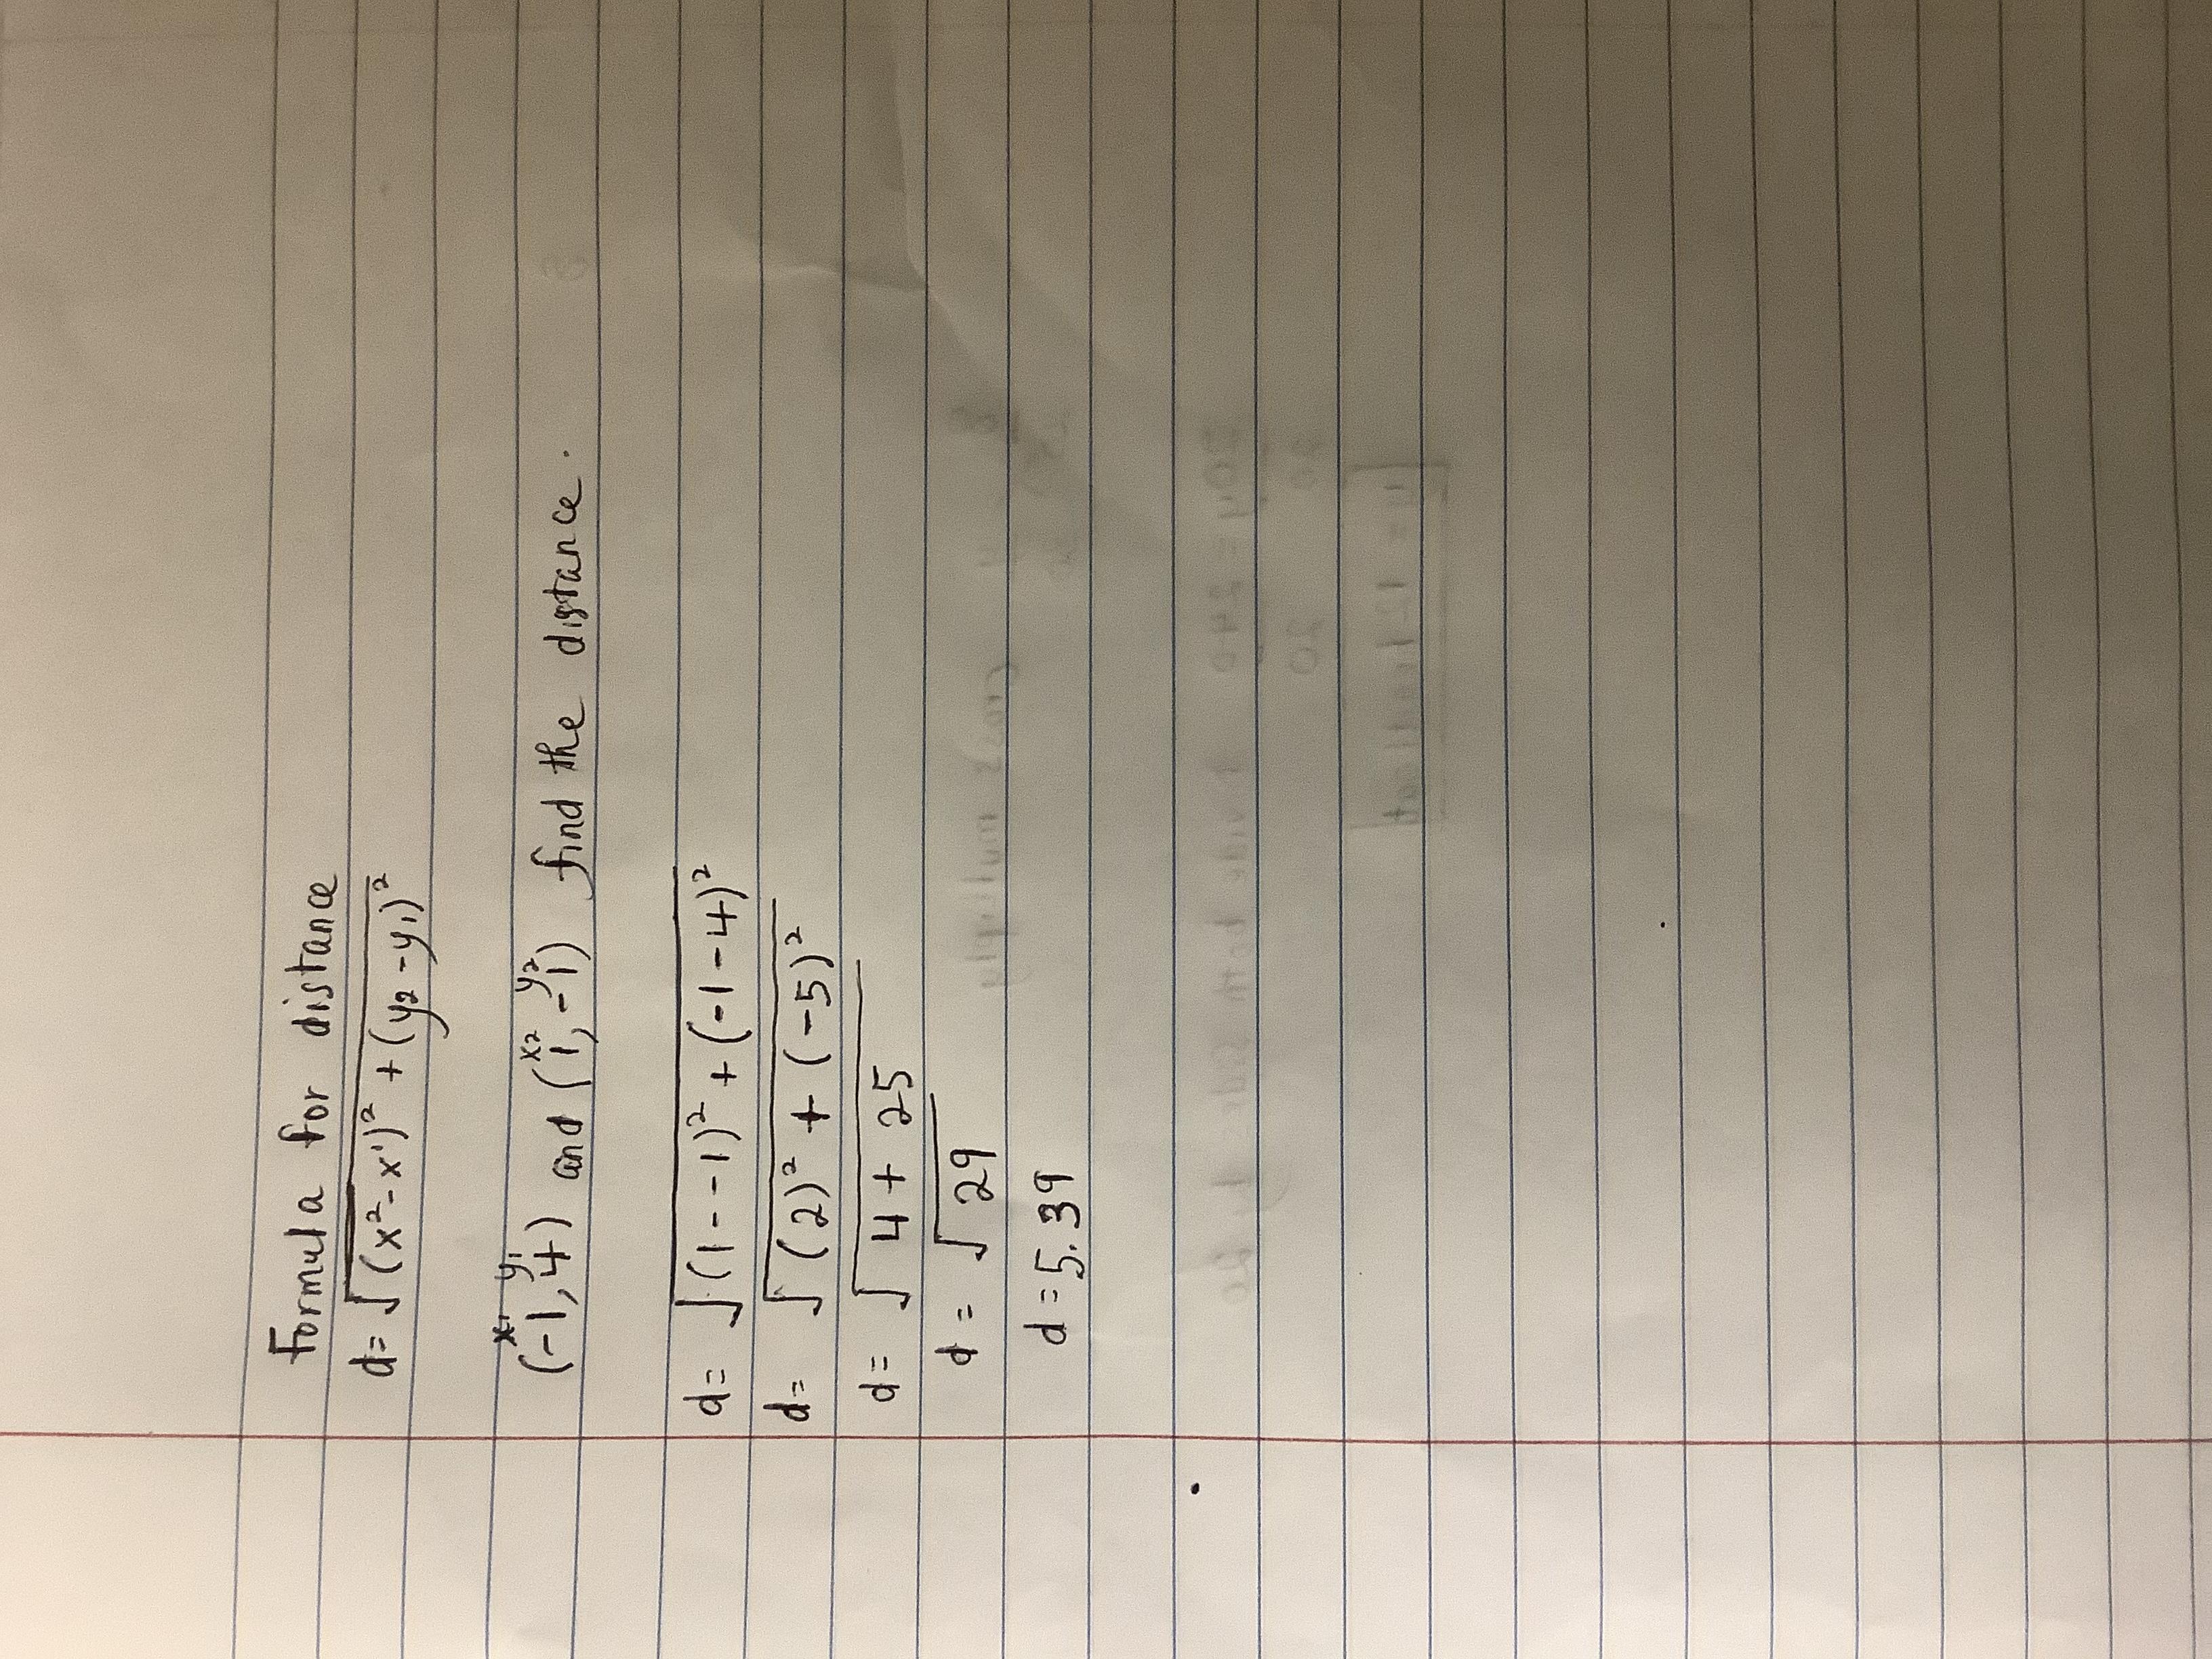 Formula for distance
d= √(x²-x¹)² + (y₂-y₁)²
x₁ y₁ x₂ y₂
(-1,4) and (1,-1) find the distance.
d= √(1--1)² + (-1-4)²
d= √(2)² + (-5)²
d= √4 + 25
d = √29
d = 5.39